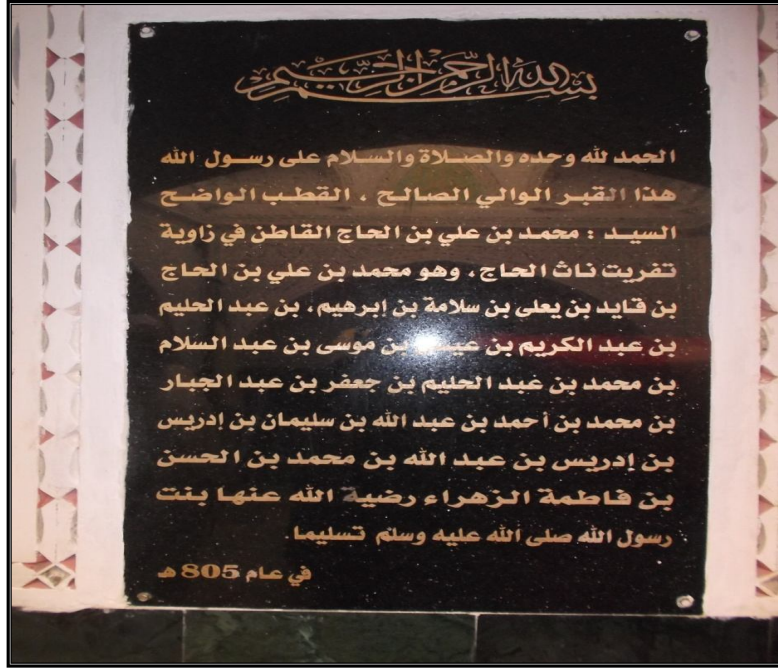 بسم الله الرحمن الرحيم
الحمد لله وحده والصلاة والسلام على رسول الله
هذا القبر الوالي الصالح ، القطب الواضح
السيد : محمد بن علي بن الحاج القاطن في زاوية
تفريت ناث الحاج ، وهو محمد بن علي بن الحاج
بن قايد بن يعلى بن سلامة بن إبرهيم ، بن عبد الحليم
بن عبد الكريم بن عيسى بن موسى بن عبد السلام
بن محمد بن عبد الحليم بن جعفر بن عبد الجبار
بن محمد بن أحمد بن عبد الله بن سليمان بن إدريس
بن إدريس بن عبد الله بن محمد بن الحسن
بن فاطمة الزهراء رضية الله عنها بنت
رسول الله صلى الله عليه وسلم تسليما
في عام 805 هـ